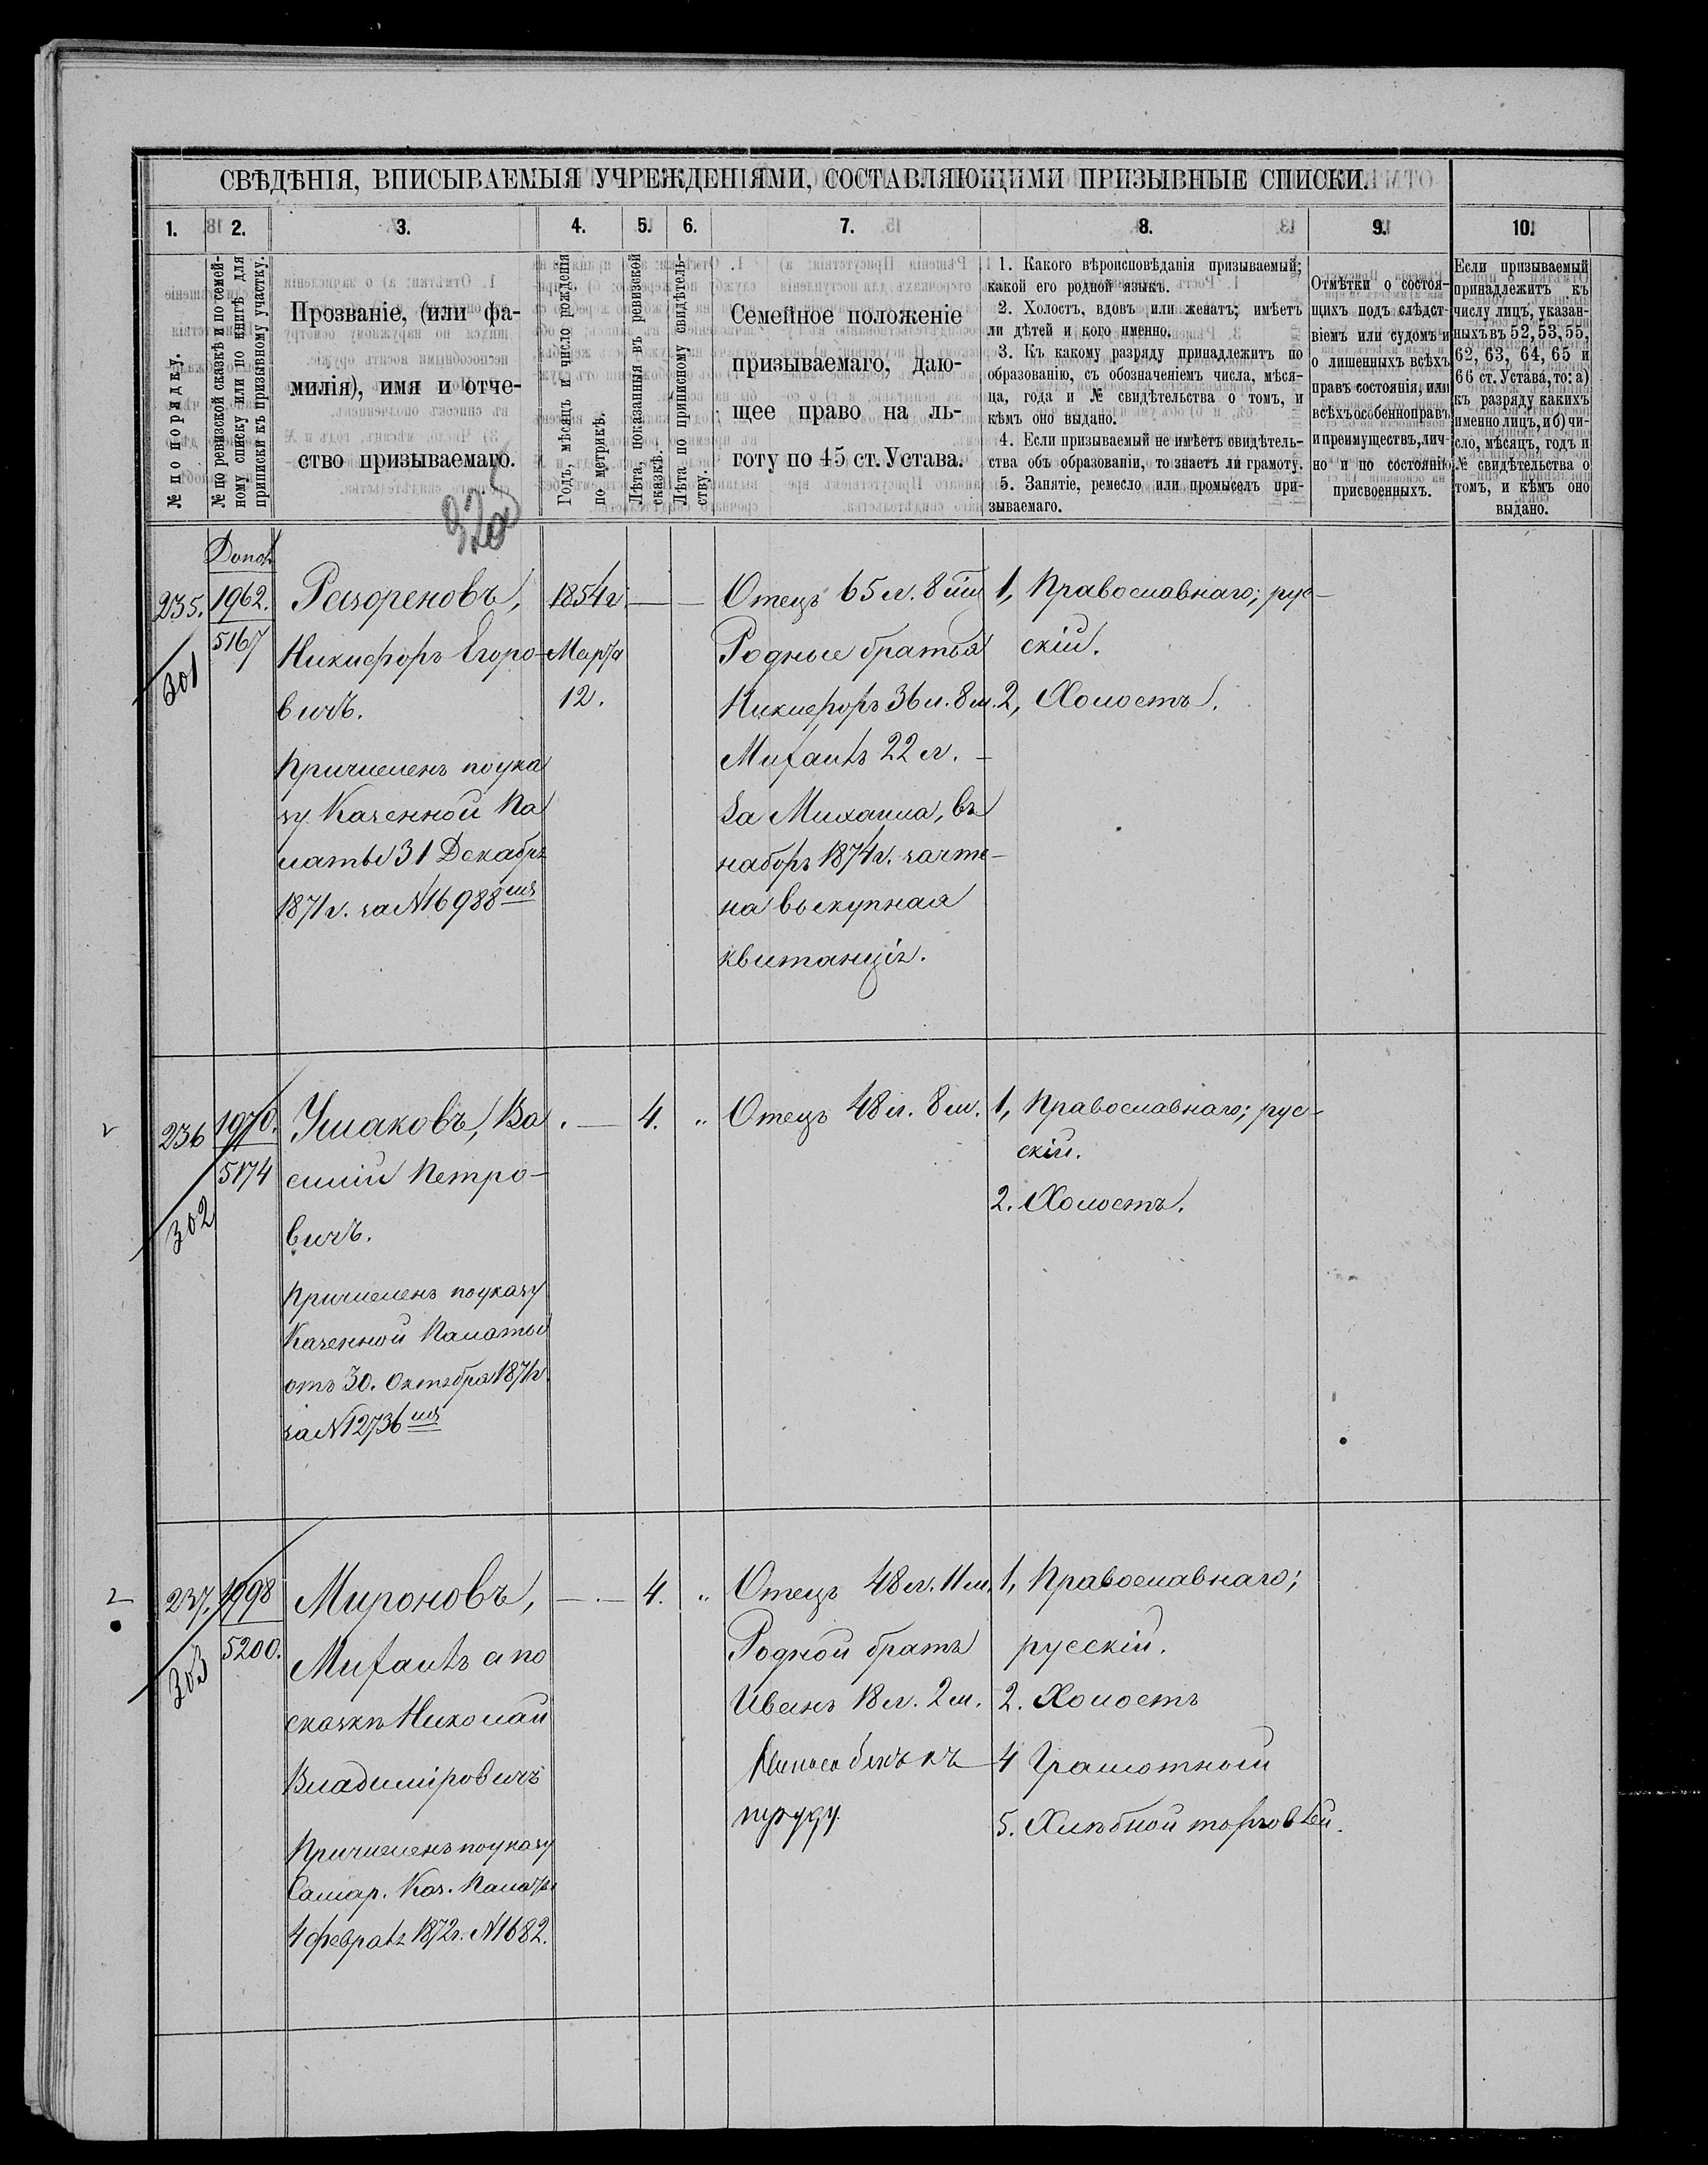 СВѢДѢНІЯ, ВПИСЫВАЕМЫЯ УЧРЕЖДЕНІЯМИ, СОСТАВЛЯЮЩИМИ ПРИЗЫВНЫЕ СПИСКИ.
1. 2. 3. 4. 5. 6. 7. 8. 9. 10.
№ по порядку.
№ по ревизской сказкѣ и по семей-
ному списку или по книгѣ для
приписки къ призывному участку.
Прозваніе, (или фа-
милія), имя и отче-
ство призываемаго.
Годъ, мѣсяцъ и число рожденія
по метрикѣ.
Лѣта, показанныя въ ревизской
сказкѣ.
Лѣта по приписному свидѣтель-
ству.
Семейное положеніе
призываемаго, даю-
щее право на ль-
готу по 45 ст. Устава.
1. Какого вѣроисповѣданія призываемый;
какой его родной языкъ.
2. Холостъ, вдовъ или женатъ; имѣетъ
ли дѣтей и кого именно.
3. Къ какому разряду принадлежитъ по
образованію, съ обозначеніемъ числа, мѣся-
ца, года и № свидѣтельства о томъ, и
кѣмъ оно выдано.
4. Если призываемый не имѣетъ свидѣтель-
ства объ образованіи, то знаетъ ли грамоту.
5. Занятіе, ремесло или промыселъ при-
зываемаго.
Отмѣтки о состоя-
щихъ подъ слѣдст-
віемъ или судомъ и
о лишенныхъ всѣхъ
правъ состоянія, или
всѣхъ особенно правъ
и преимуществъ, лич-
но и по состоянію
присвоенныхъ.
Если призываемый
принадлежитъ къ
числу лицъ, указан-
ныхъ въ 52, 53, 55,
62, 63, 64, 65 и
66 ст. Устава, то: а)
къ разряду какихъ
именно лицъ, и б) чи-
сло, мѣсяцъ, годъ и
№ свидѣтельства о
томъ, и кѣмъ оно
выдано.
235.
301
1962.
5167
Разореновъ,
Никифоръ Егоро-
вичъ.
Причисленъ по ука
зу Казенной Па
латы 31 Декабря
1871 г. за № 16988
1854 г.
Марта
12.
Отецъ 65 л. 8 м
Родные братья
Никифоръ 36 л. 8 м.
Михаилъ 22 л. -
За Михаила, въ
наборъ 1874 г. зачте-
на выкупная
квитанція.
1, Православнаго; рус-
скій.
2, Холостъ.
236
302
1970.
5174
Ушаковъ, Ва
силій Петро-
вичъ.
Причисленъ по указу
Казенной Палаты
отъ 30. Октября 1871 г.
за № 12736
4. "
Отецъ 48 л. 8 м.
1, Православнаго; рус-
скій.
2. Холостъ.
237.
303
1998
5200.
Мироновъ,
Михаилъ а по
сказкѣ Николай
Владиміровичъ
Причисленъ по указу
Самар. Каз. Палаты
4 февраля 1872 г. № 1682.
4. "
Отецъ 48 л. 11 м.
Родной братъ
Иванъ 18 л. 2 м.
къ
труду.
1, Православнаго;
русскій.
2. Холостъ
4 Грамотный
5. Хлѣбной торговлей.